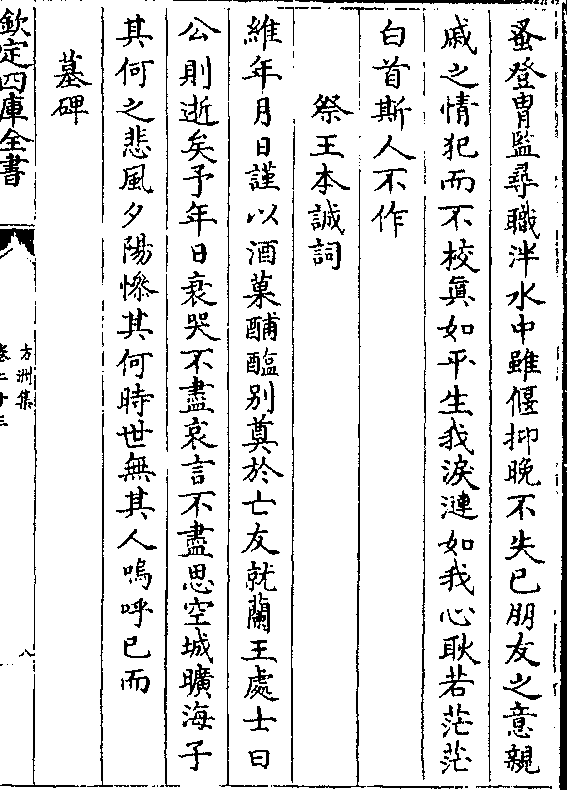 蚤登胄監尋職泮水中雖偃抑晚不失已朋友之意親
戚之情犯而不校眞如平生我淚漣如我心耿若茫茫
白首斯人不作
祭王本誠詞
維年月日謹以酒菓酺醢别奠於亡友就蘭王處士曰
公則逝矣予年日衰哭不盡哀言不盡思空城曠海子
其何之悲風夕陽慘其何時世無其人嗚呼已而
墓碑
欽定四庫全書
方洲集
卷二十三
八